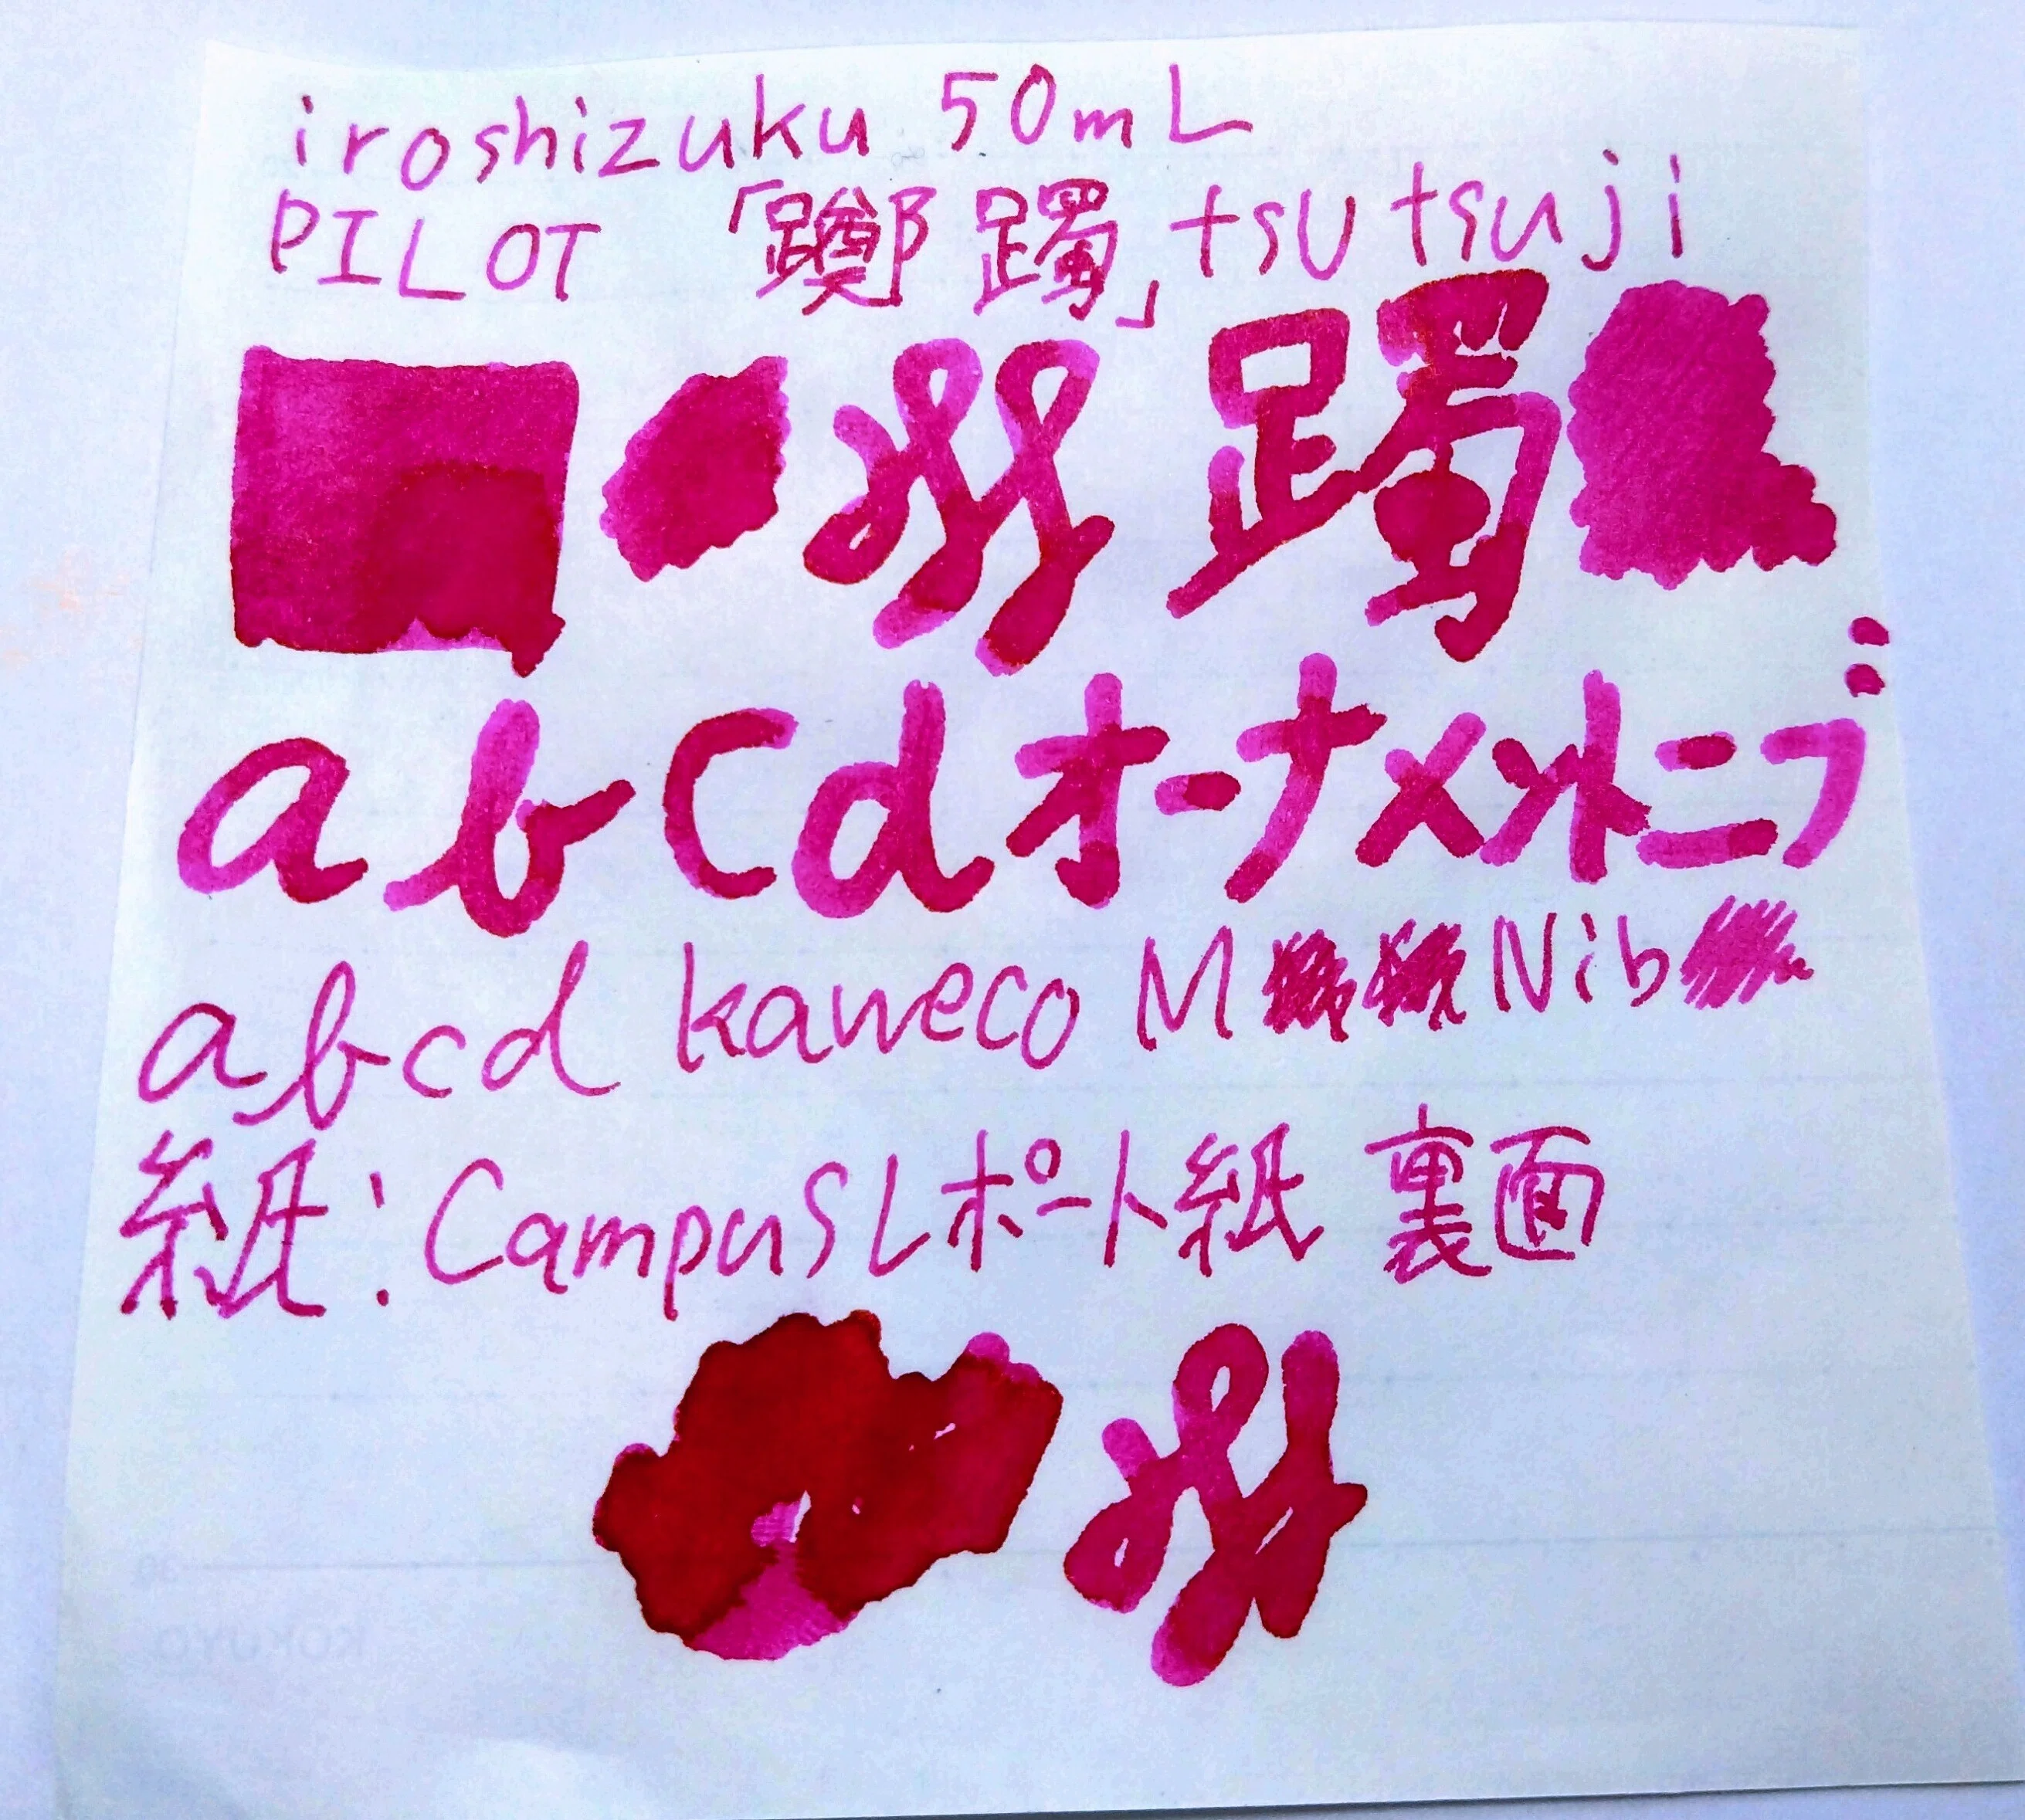 iroshizuku 50mL
PILOT 「躑躅」 tsutsuji
躅
abcd オーナメントニブ
abcd kaweco M Nib
紙:Campusレポート紙 裏面
30
KOKUYO